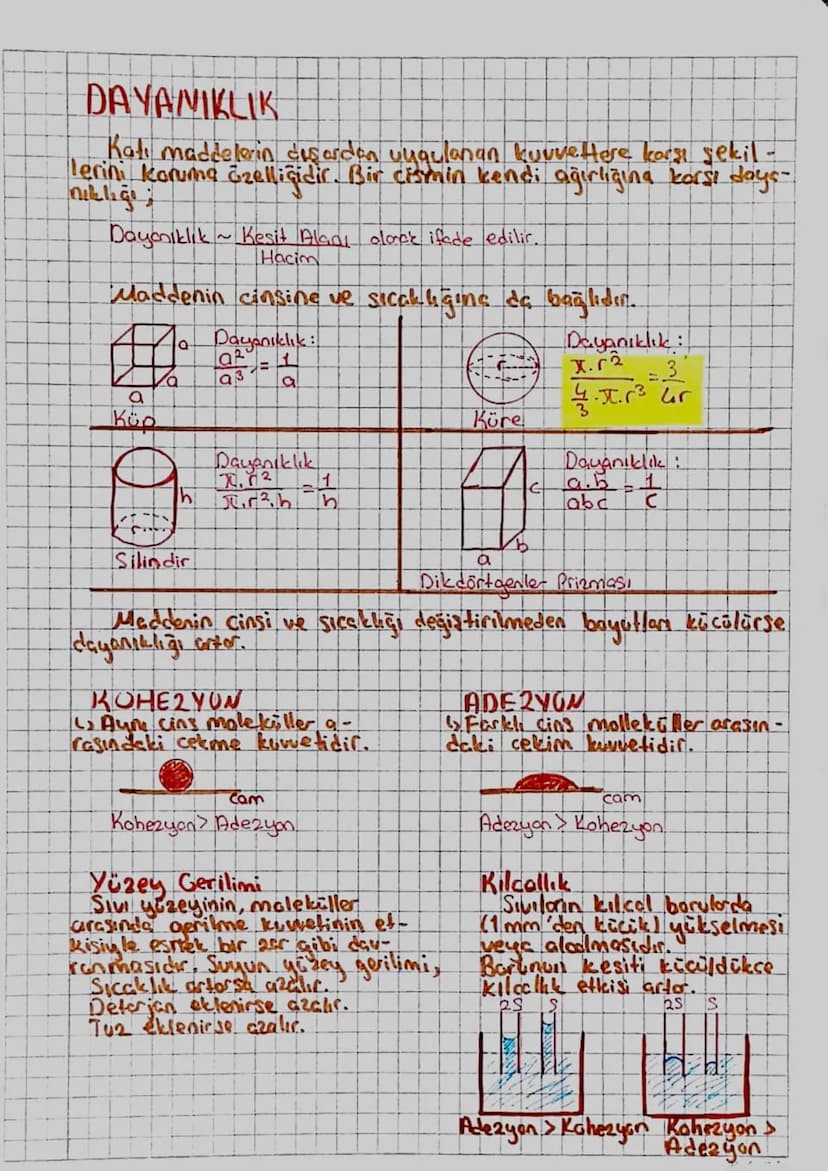 DAYANIKLIK
Katı maddelerin dışardan uygulanan kuvvetlere karşı şekil-
lerini koruma özelliğidir. Bir cismin kendi ağırlığına karşı daya-
nıklılığı;
Dayanıklılık ~ Kesit Alanı / Hacim olarak ifade edilir.
Maddenin cinsine ve sıcaklığına da bağlıdır.
a
a
a
Küp
Dayanıklık:
a²/a³ = 1/a
r
Küre
Dayanıklık:
π.r² / 4/3.π.r³ = 3/4r
h
r
Silindir
Dayanıklık
π.r²/π.r².h = 1/h
c
b
a
Dikdörtgenler Prizması
Dayanıklık:
a.b/abc = 1/c
Maddenin cinsi ve sıcaklığı değiştirilmeden boyutları küçülürse
dayanıklığı artar.
KOHEZYON
↳ Aynı cins moleküller a-
rasındaki çekme kuvvetidir.
cam
Kohezyon > Adezyon
ADEZYON
↳ Farklı cins molleküller arasın-
daki çekim kuvvetidir.
cam
Adezyon > Kohezyon
Yüzey Gerilimi
Sıvı yüzeyinin, moleküller
arasında gerilme kuvvetinin et-
kisiyle esnek bir zar gibi dav-
ranmasıdır. Suyun yüzey gerilimi,
Sıcaklık artarsa azalır.
Deterjan eklenirse azalır.
Tuz eklenirse azalır.
Kılcallık
Sıvıların kılcal borularda
(1mm'den küçük) yükselmesi
veya alçalmasıdır.
Borunun kesiti küçüldükçe
kılcallık etkisi artar.
2S S
Adezyon > Kohezyon
2S S
Kohezyon >
Adezyon